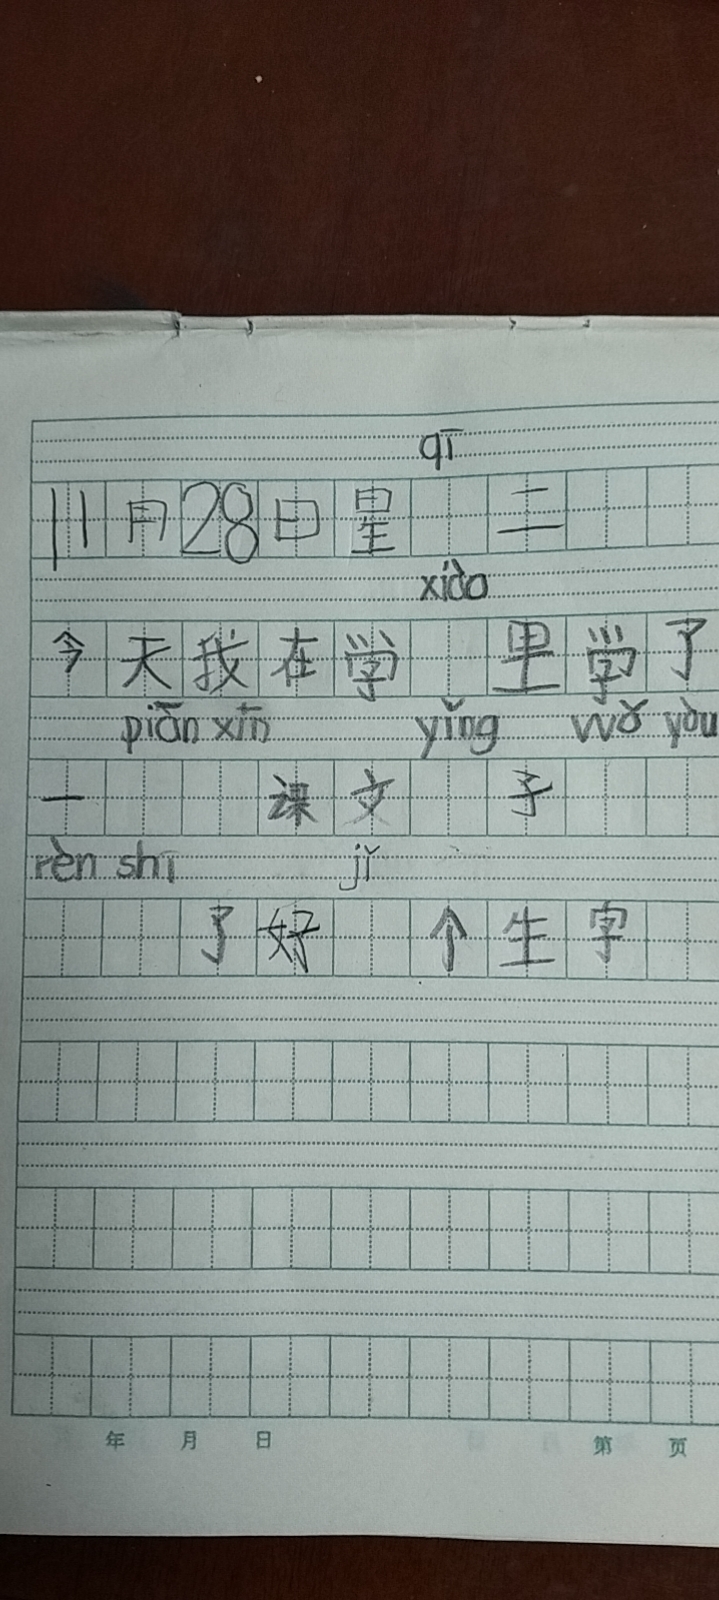 qī
11月28日星 二
xiào
今天我在学 里学了
piān xīn yǐng wǒ yòu
一 课文 子
rèn shi jǐ
了好 个生字
年 月 日 第 页